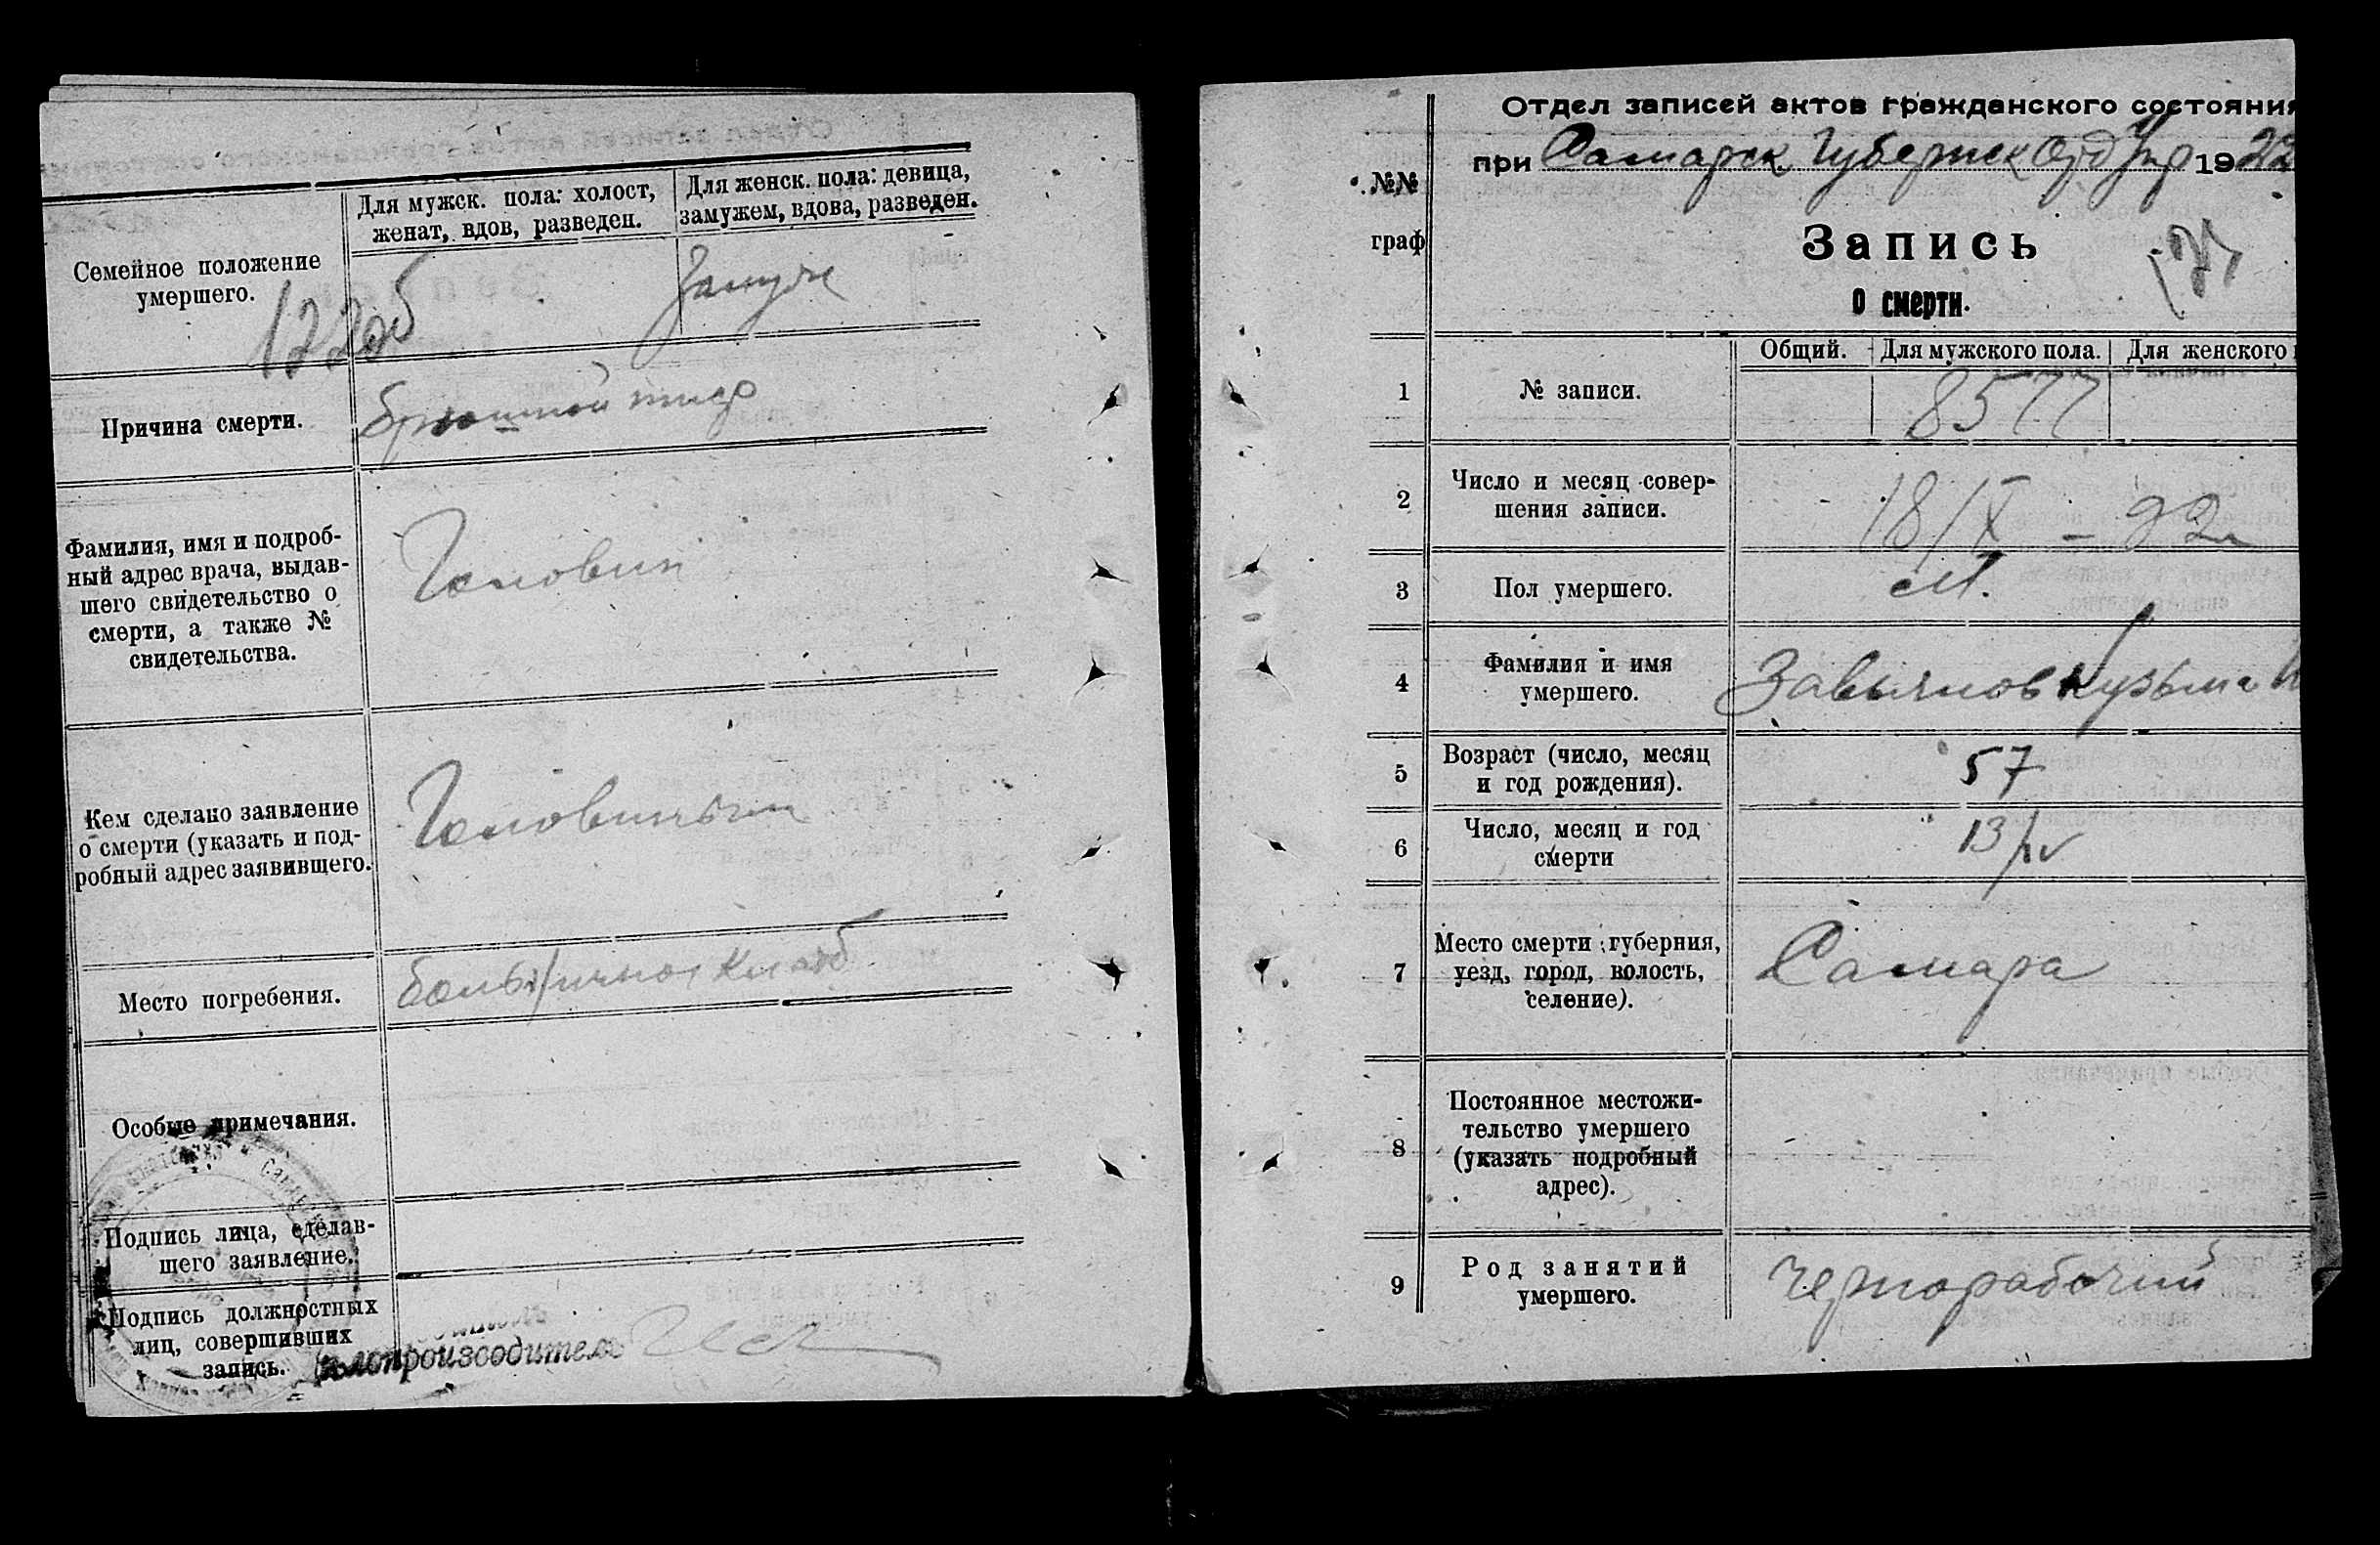 Для мужск. пола: холост,
женат, вдов, разведен.
Для женск. пола: девица,
замужем, вдова, разведен.
Семейное положение
умершего.
замуж
122об
Причина смерти.
брюшной тиф
Фамилия, имя и подроб-
ный адрес врача, выдав-
шего свидетельство о
смерти, а также №
свидетельства.
Головин
Кем сделано заявление
о смерти (указать и под-
робный адрес заявившего.
Головиным
Место погребения.
Особые примечания.
Подпись лица, сделав-
шего заявление.
Подпись должностных
лиц, совершивших
запись.
Делопроизводитель
Отдел записей актов гражданского состояния
при Самарск Губернск Отд Упр 1922
№№
граф
Запись
о смерти.
Общий.
Для мужского пола.
Для женского
1
№ записи.
8577
2
Число и месяц совер-
шения записи.
18/X - 22
3
Пол умершего.
М.
4
Фамилия и имя
умершего.
Завьялов Кузьма
5
Возраст (число, месяц
и год рождения).
57
6
Число, месяц и год
смерти
13/IV
7
Место смерти (губерния,
уезд, город, волость,
селение).
Самара
8
Постоянное местожи-
тельство умершего
(указать подробный
адрес).
9
Род занятий
умершего.
Чернорабочий